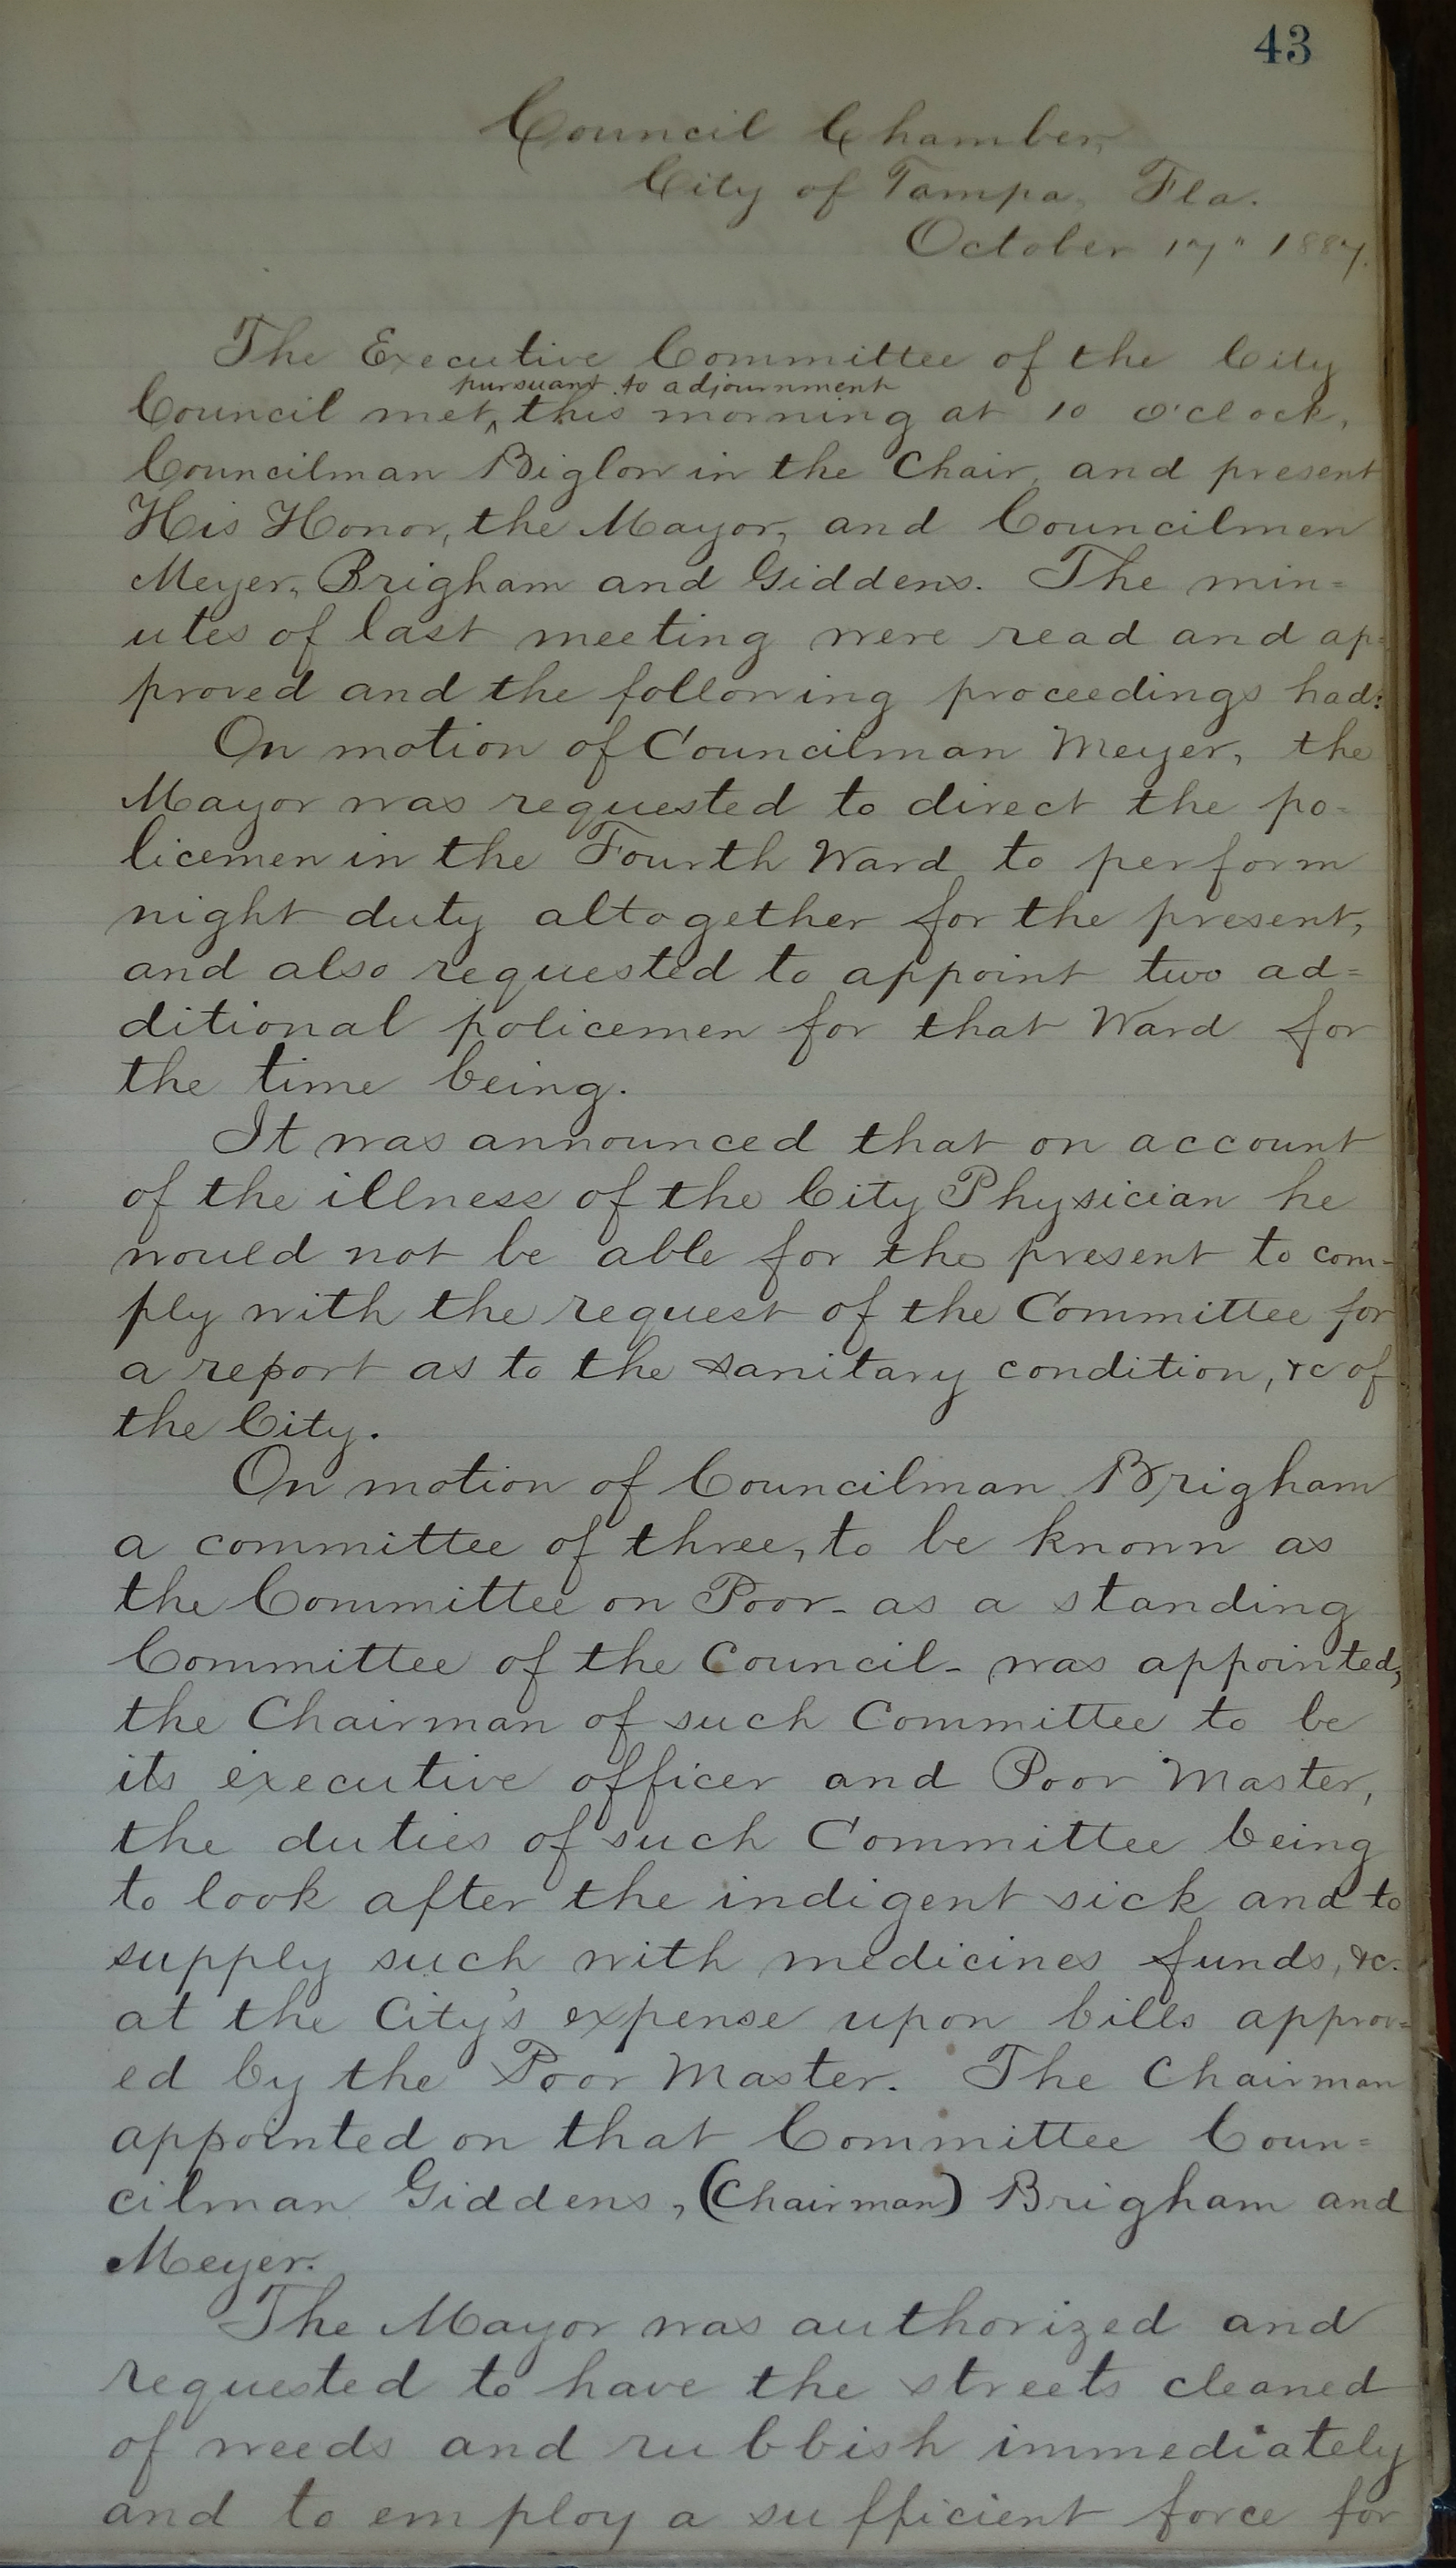 43
Council Chamber,
City of Tampa, Fla.
October 17" 1887.
The Executive Committee of the City
pursuant to adjournment
Council met, ^ this morning at 10 o'clock,
Councilman Biglow in the Chair, and present
His Honor, the Mayor, and Councilmen
Meyer, Brigham and Giddens. The min=
utes of last meeting were read and ap=
proved and the following proceedings had:
On motion of Councilman Meyer, the
Mayor was requested to direct the po=
licemen in the Fourth Ward to perform
night duty altogether for the present,
and also requested to appoint two ad=
ditional policemen for that Ward for
the time being.
It was announced that on account
of the illness of the City Physician he
would not be able for the present to com-
ply with the request of the Committee for
a report as to the sanitary condition, &c of
the City.
On motion of Councilman Brigham
a committee of three, to be known as
the Committee on Poor - as a standing
Committee of the Council - was appointed,
the Chairman of such Committee to be
its executive officer and Poor Master,
the duties of such Committee being
to look after the indigent sick and to
supply such with medicines funds, &c.
at the City's expense upon bills approv=
ed by the Poor Master. The Chairman
appointed on that Committee Coun=
cilman Giddens, (Chairman) Brigham and
Meyer.
The Mayor was authorized and
requested to have the streets cleaned
of weeds and rubbish immediately
and to employ a sufficient force for